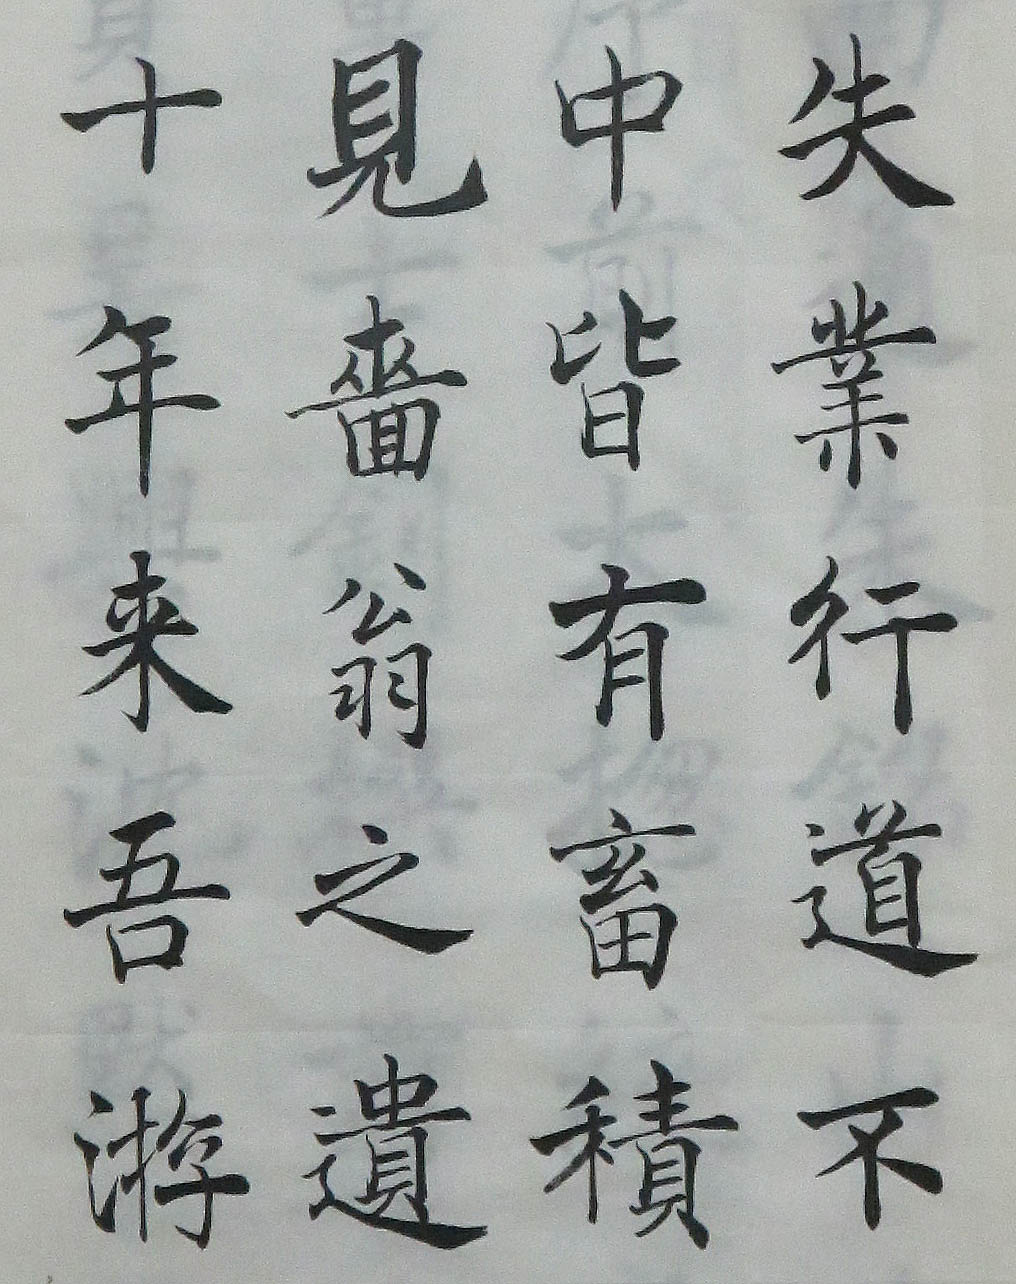 失業行道不
中皆有畜積
見嗇翁之遺
十年来吾游